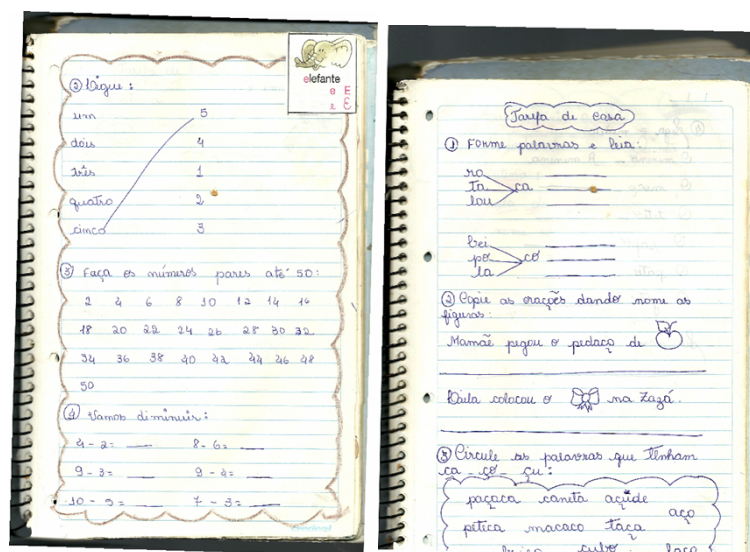 elefante
e E
e E
② Ligue:
um 5
dois 4
três 1
quatro 2
cinco 3
③ Faça os números pares até 50:
2 4 6 8 10 12 14 16
18 20 22 24 26 28 30 32
34 36 38 40 42 44 46 48
50
④ Vamos diminuir:
4-2= ___ 8-6= ___
9-3= ___ 9-4= ___
10-9= ___ 7-3= ___
Tarefa de casa
① Forme palavras e leia:
ro
ta ça
lou
bei
po ço
la
② Copie as orações dando nome as
figuras:
Mamãe pegou o pedaço de
Dada colocou o na Zazá.
③ Circule as palavras que tenham
ça - ço - çu:
paçoca caneta açude
aço
peteca macaco taça
cubo laço